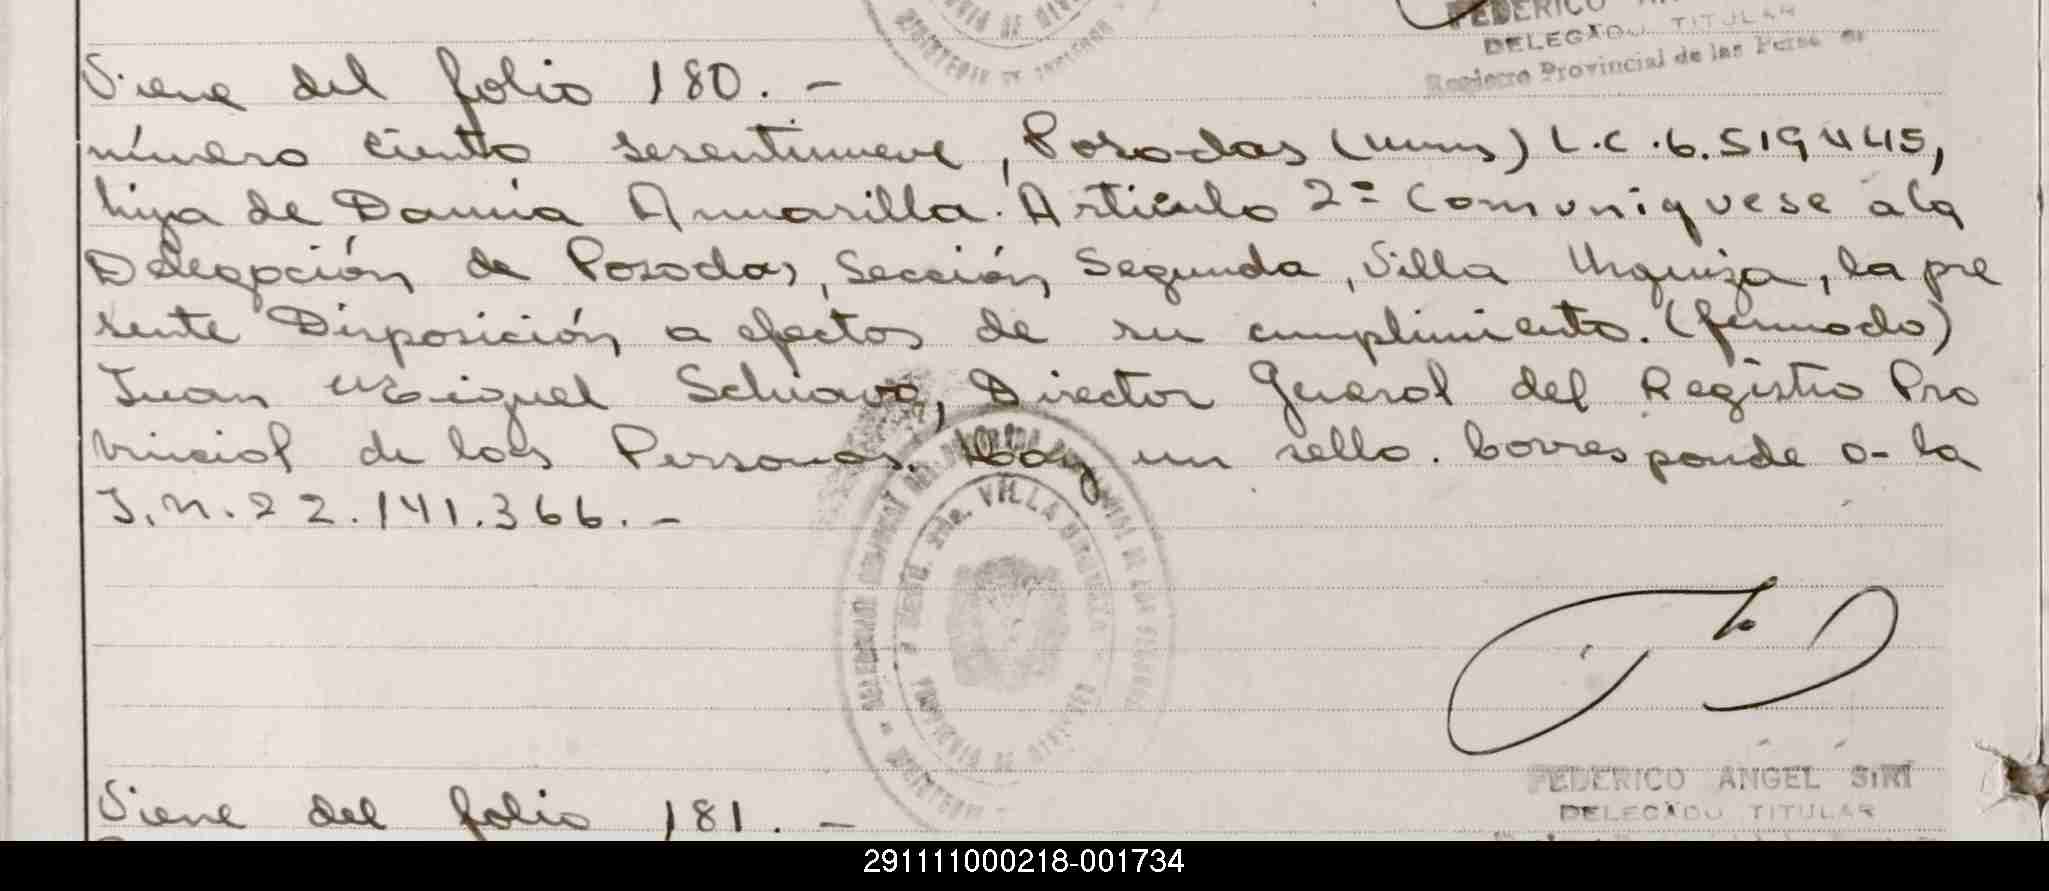 FEDERICO
DELEGADO TITULAR
Registro Provincial de las Personas
Viene del folio 180. -
número ciento sesentinueve, Posodas (mnes) L.C. 6.519445,
hija de Damia Amarilla. Artículo 2º Comuniquese a la
Delegación de Posodas, Sección Segunda, Villa Urquiza, la pre
sente Disposición a efectos de su cumplimiento. (firmado)
Juan Miguel Schiavo, Director General del Registro Pro
vincial de las Personas. Hay un sello. Corresponde a la
I.N. 22.141.366. -
VILLA URQUIZA
FEDERICO ANGEL SIRI
DELEGADO TITULAR
Viene del folio 181. -
291111000218-001734